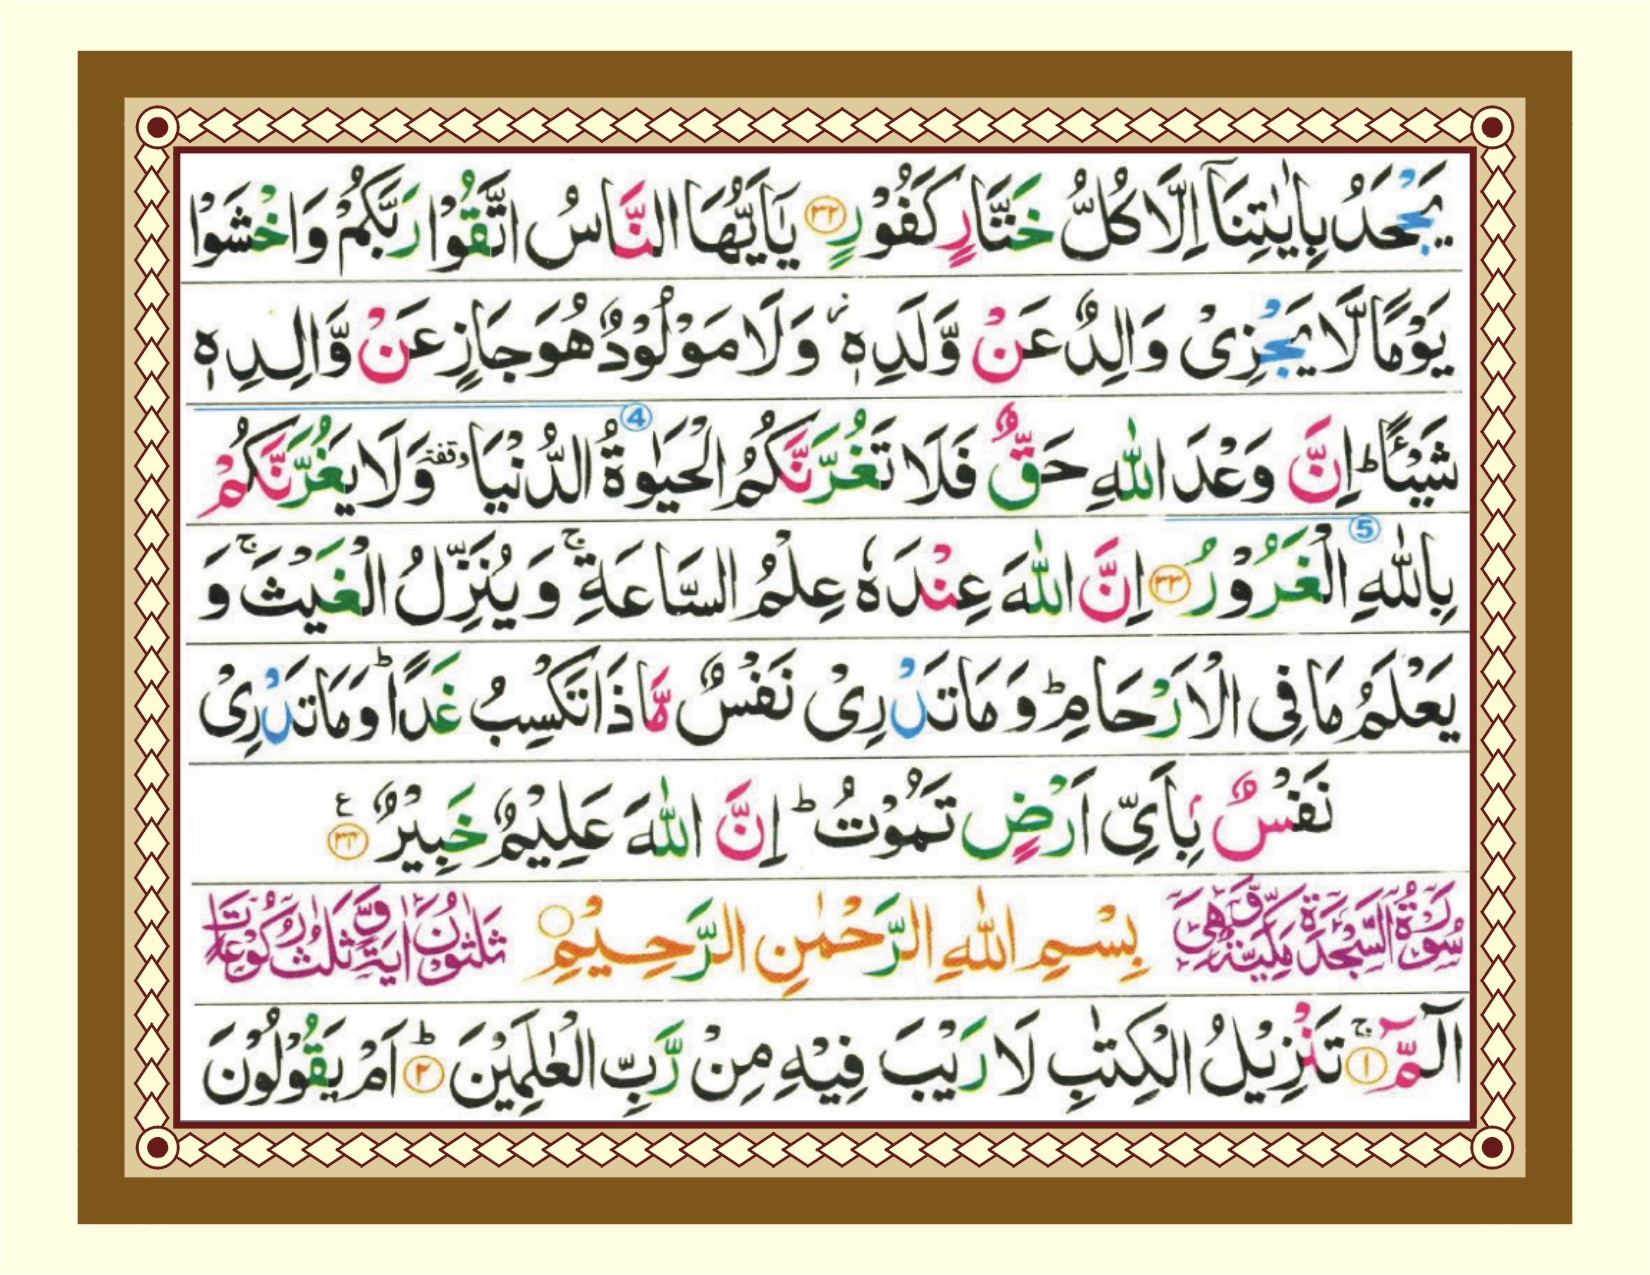 يَجْحَدُ بِاٰيٰتِنَاۤ اِلَّا كُلُّ خَتَّارٍ كَفُوْرٍ ﴿۳۲﴾ يٰۤاَيُّهَا النَّاسُ اتَّقُوْا رَبَّكُمْ وَاخْشَوْا
يَوْمًا لَّا يَجْزِىْ وَالِدٌ عَنْ وَّلَدِهٖ ؗ وَلَا مَوْلُوْدٌ هُوَ جَازٍ عَنْ وَّالِدِهٖ
شَيْـًٔا ؕ اِنَّ وَعْدَ اللّٰهِ حَقٌّ فَلَا تَغُرَّنَّكُمُ الْحَيٰوةُ الدُّنْيَا وقفة وَلَا يَغُرَّنَّكُمْ
4
بِاللّٰهِ الْغَرُوْرُ ﴿۳۳﴾ اِنَّ اللّٰهَ عِنْدَهٗ عِلْمُ السَّاعَةِ ۚ وَيُنَزِّلُ الْغَيْثَ ۚ وَ
5
يَعْلَمُ مَا فِى الْاَرْحَامِ ؕ وَمَا تَدْرِىْ نَفْسٌ مَّاذَا تَكْسِبُ غَدًا ؕ وَمَا تَدْرِىْ
نَفْسٌۢ بِاَىِّ اَرْضٍ تَمُوْتُ ؕ اِنَّ اللّٰهَ عَلِيْمٌ خَبِيْرٌ ﴿۳۴﴾ ع
سُوْرَةُ السَّجْدَةِ مَكِّيَّةٌ وَّهِىَ بِسْمِ اللّٰهِ الرَّحْمٰنِ الرَّحِيْمِ ثَلٰثُوْنَ اٰيَةً وَّثَلٰثُ رُكُوْعَاتٍ
الٓمّٓ ۚ ﴿۱﴾ تَنْزِيْلُ الْكِتٰبِ لَا رَيْبَ فِيْهِ مِنْ رَّبِّ الْعٰلَمِيْنَ ؕ ﴿۲﴾ اَمْ يَقُوْلُوْنَ